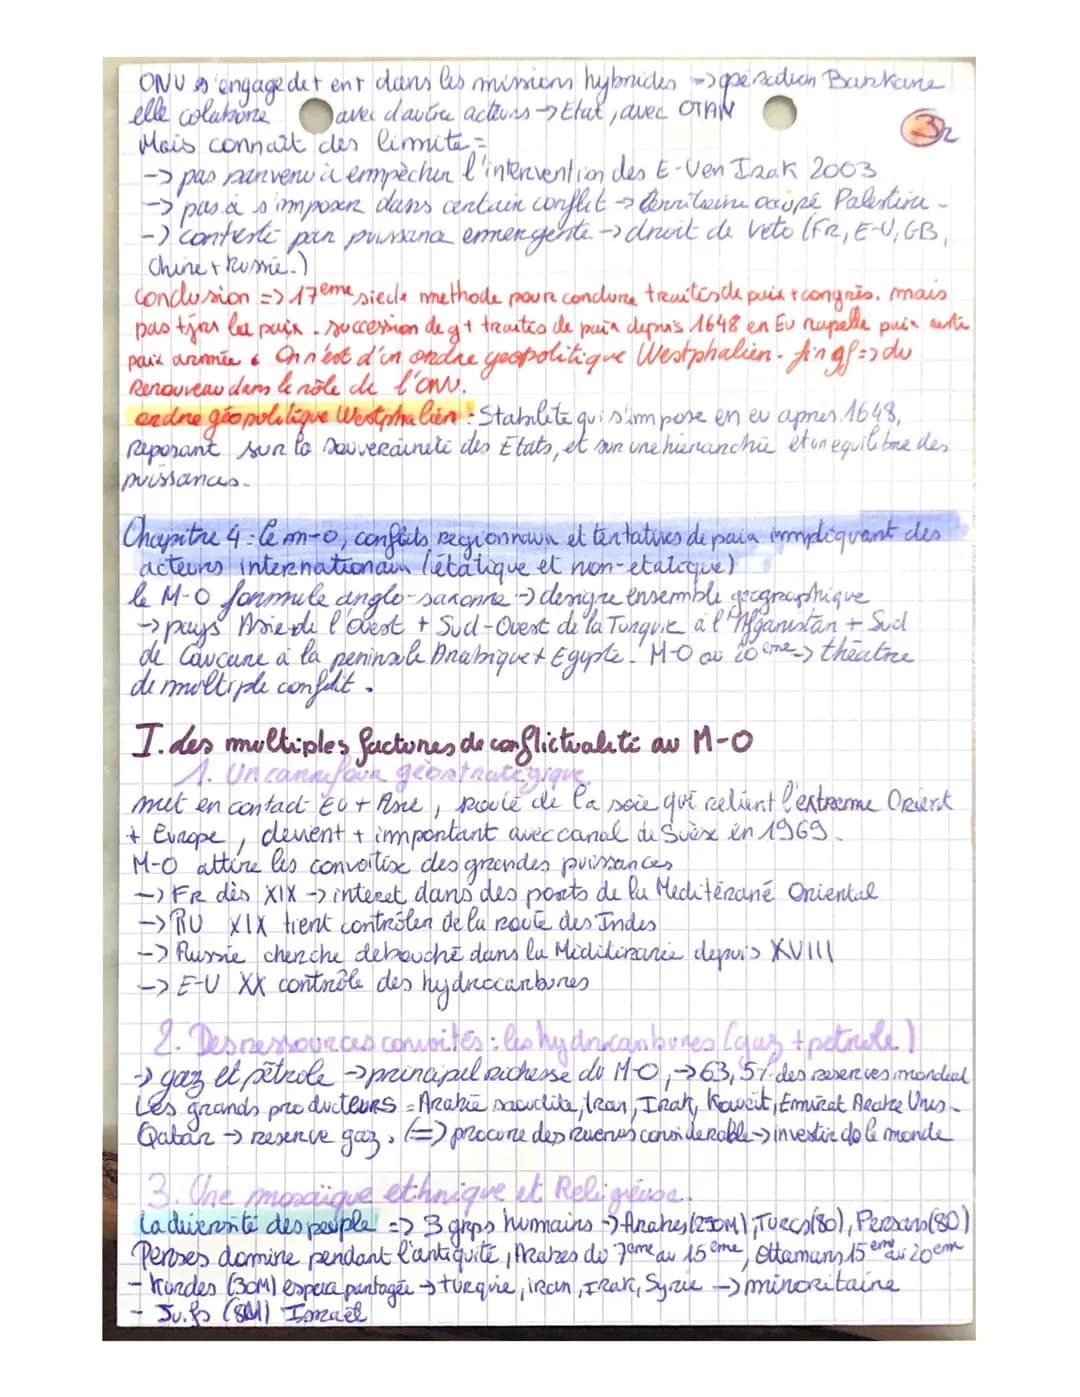 ONU s'engage de + en + dans les missions hybrides -> opération Barkane
elle colabore avec d'autre acteurs -> Etat, avec OTAN
32
Mais connaît des limite =
-> pas parvenu à empêcher l'intervention des E-U en Irak 2003
-> pas à s'imposer dans certain conflit -> territoire occupé Palestine -
-> contesté par puissance emergente -> droit de veto (FR, E-U, GB,
Chine + Russie.)
Conclusion => 17eme siecle methode pour conclure traités de paix + congrès. mais
pas tjrs la paix. succession de g + traités de paix depuis 1648 en Eu rapelle paix
paix armée. On n'est d'un ordre geopolitique Westphalien. fin gf => du
Renouveau dans le rôle de l'ONU.
ordre géopolitique Westphalien : Stabilité qui s'impose en eu apres 1648,
Reposant sur la Souveraineté des Etats, et sur une hierarchie et un equilibre des
puissances.
Chapitre 4 : le m-o, conflits regionnaux et tentatives de paix impliquant des
acteurs internationaux (étatique et non-etatique)
le M-O formule anglo-saxonne -> designe ensemble geographique
-> pays Asie de l'Ouest + Sud-Ouest de la Turquie à l'Afganistan + Sud
de Caucase à la peninsule Arabique + Egypte. M-O au 20eme -> théatre
de multiple conflit.
I. des multiples facteures de conflictualité au M-O
1. Un carrefour géostratégique
met en contact Eu + Asie, route de la soie qui relient l'extreme Orient
+ Europe, devient + important avec canal de Suèse en 1969.
M-O attire les convoitise des grandes puissances
-> FR dès XIX -> interet dans des ports de la Mediterané Oriental
-> RU XIX tient contrôler de la route des Indes
-> Russie cherche debouché dans la Méditeranie depuis XVIII
-> E-U XX contrôle des hydrocarbures
2. Des ressources convoités : les hydrocarbures (gaz + petrole)
-> gaz et pétrole -> principal richesse du M-O, -> 63,5% des reserves mondial
Les grands producteurs = Arabie saoudite, Iran, Irak, Koweit, Emirat Arabe Unis -
Qatar -> reserve gaz. (=) procure des revenus considerable -> investir ds le monde
3. Une mosaïque ethnique et Religieuse.
La diversité des peuple => 3 grps humains -> Arabes (250M), Turcs (80), Persans (80)
Perses domine pendant l'antiquité, Arabes du 7eme au 15eme, Ottamans 15eme au 20em
- Kurdes (30M) espace partagée -> turquie, iran, IRak, Syrie -> minoritaire
- Juifs (8M) Israël